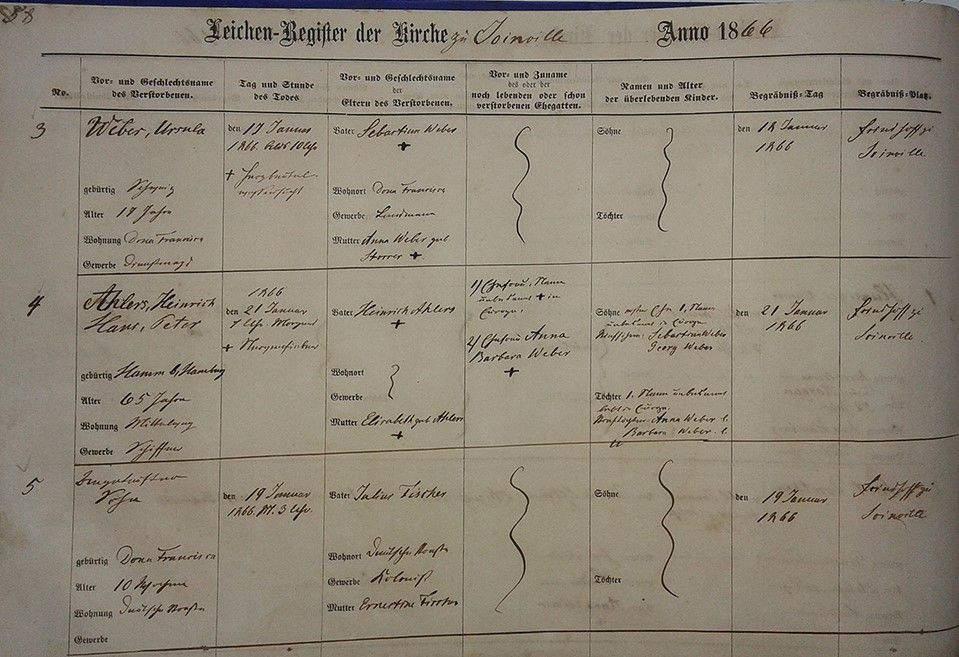 Leichen-Register der Kirche zu Joinville Anno 1866
No. Vor- und Geschlechtsname des Verstorbenen. Tag und Stunde des Todes Vor- und Geschlechtsname der Eltern des Verstorbenen. Vor- und Zuname des oder der noch lebenden oder schon verstorbenen Ehegatten. Namen und Alter der überlebenden Kinder. Begräbniß-Tag Begräbniß-Platz.
3
Weber, Ursula
gebürtig
Alter 17 Jahre
Wohnung Dona Francisca
Gewerbe Dienstmagd
den 17 Januar
1866
+
Vater Sebastian Weber
+
Wohnort Dona Francisca
Gewerbe Landmann
Mutter Anna Weber geb
Storrer +
Söhne
Töchter
den 18 Januar
1866
Friedhof zu
Joinville
4
Ahlers, Heinrich
Hans, Peter
gebürtig Hamm b, Hamburg
Alter 65 Jahre
Wohnung Mittelweg
Gewerbe Schiffer
1866
den 21 Januar
7 Uhr Morgens
+
Vater Heinrich Ahlers
+
Wohnort
Gewerbe
Mutter Elisabeth geb Ahlers
+
1) Ehefrau, Name
unbekannt + in
Europa,
2) Ehefrau Anna
Barbara Weber
+
Söhne erster Ehe 1, Name
unbekannt in Europa
Sebastian Weber
Georg Weber
Töchter 1. Name unbekannt
Europa.
Anna Weber
Barbara Weber
den 21 Januar
1866
Friedhof zu
Joinville
5
Ungetaufter
Sohn
gebürtig Dona Francisca
Alter 10 Wochen
Wohnung Deutsche
Gewerbe
den 19 Januar
1866. M. 3 Uhr.
Vater Julius Fischer
Wohnort Deutsche
Gewerbe Kolonist
Mutter Ernestine
Söhne
Töchter
den 19 Januar
1866
Friedhof zu
Joinville